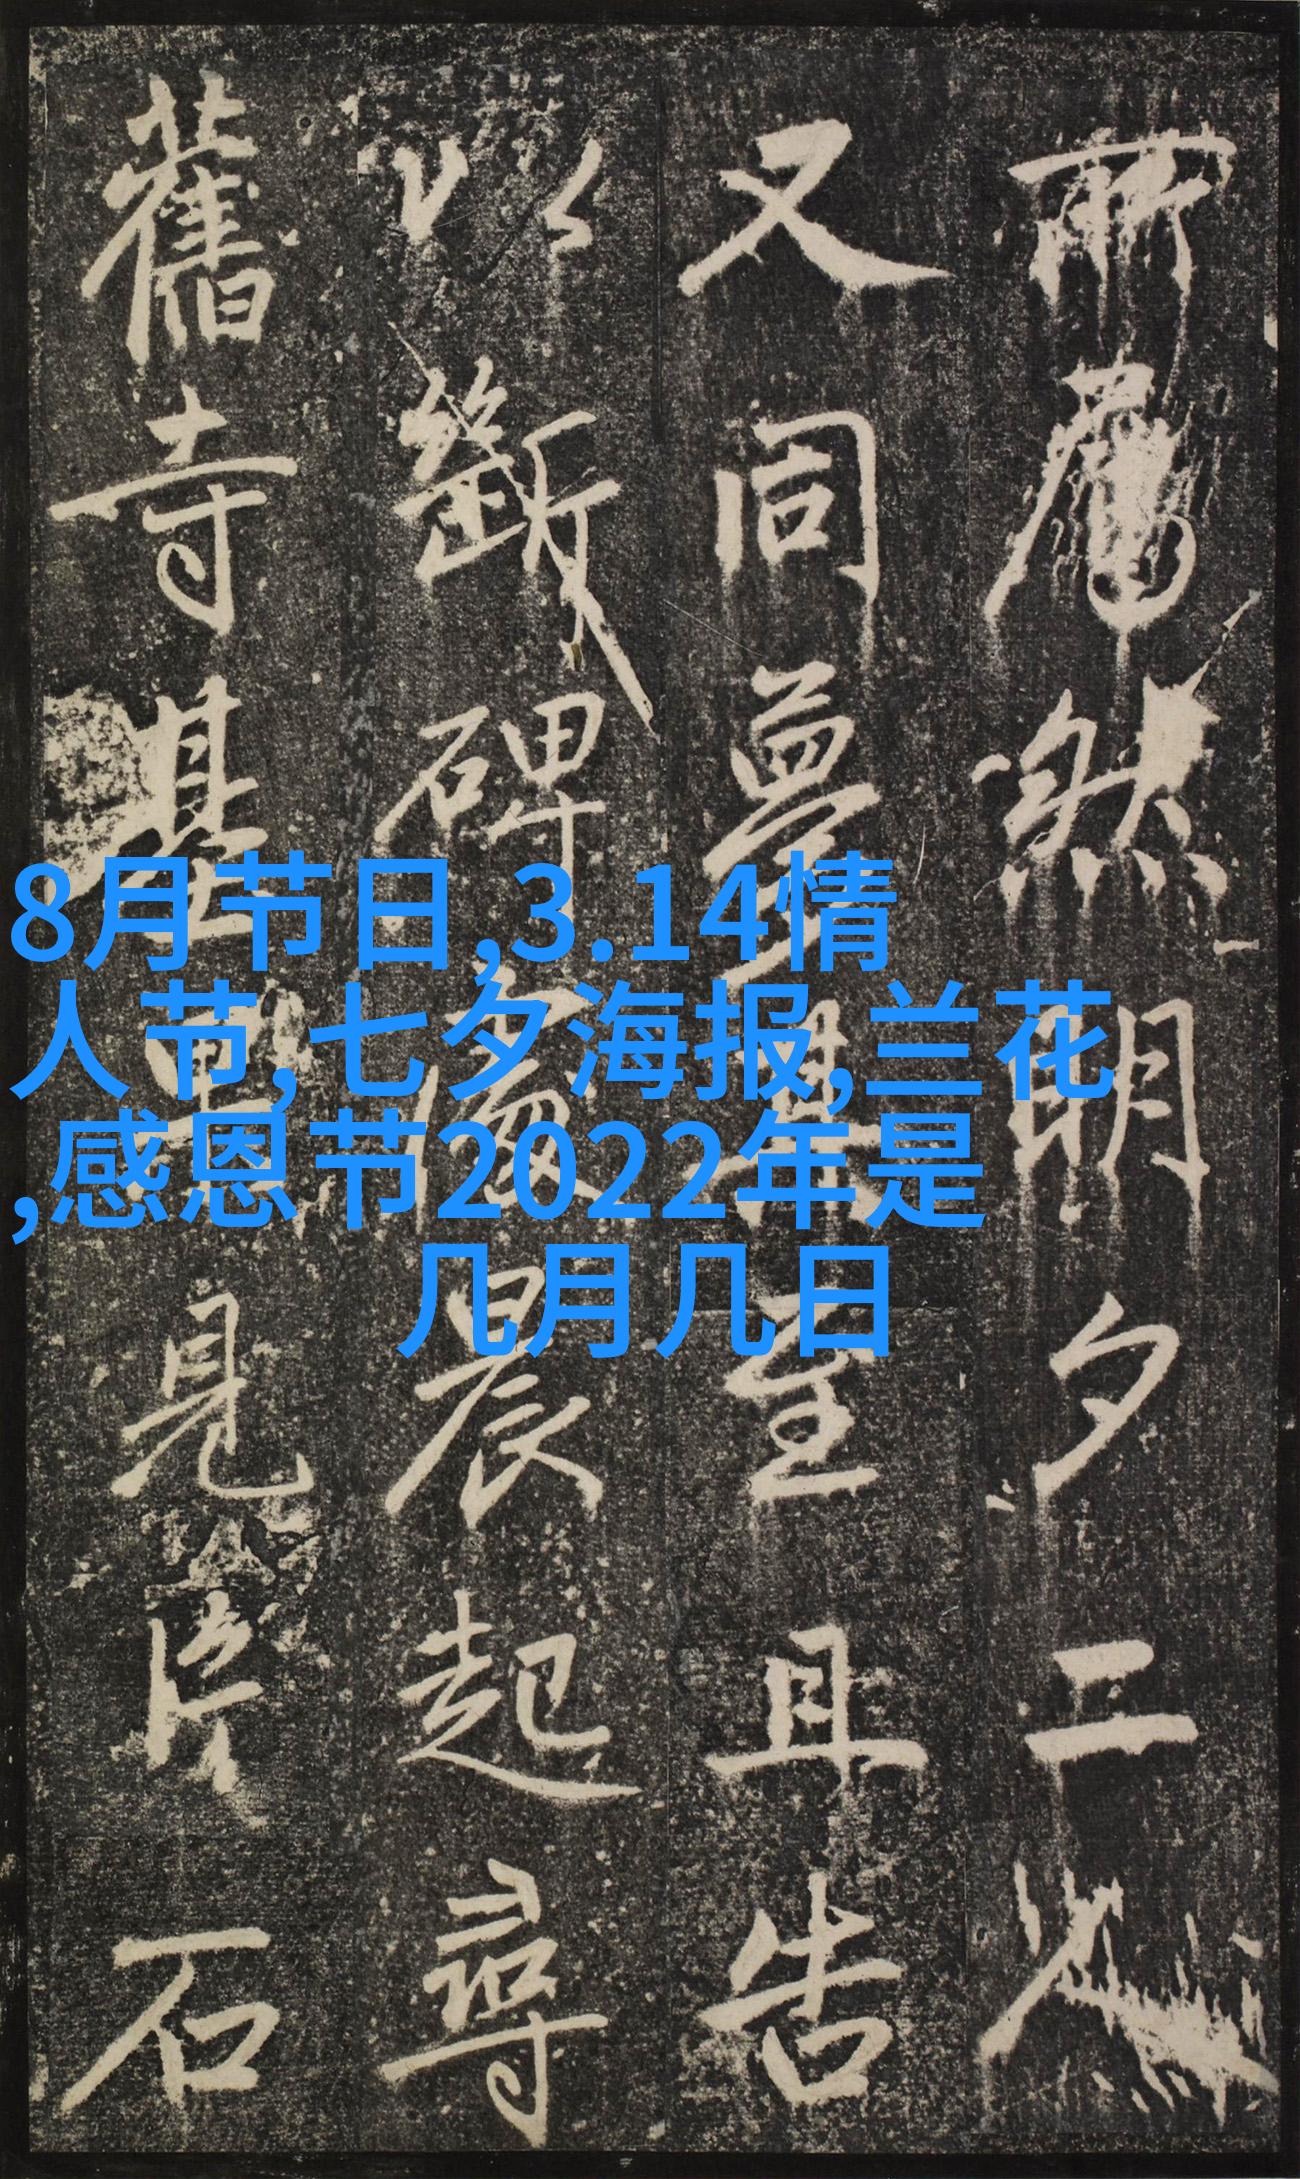 然明夕二
又同夢至且告
以斷碑處晨起尋
舊寺基見片石
8月节日,3.14情
人节,七夕海报,兰花
,感恩节2022年是
几月几日